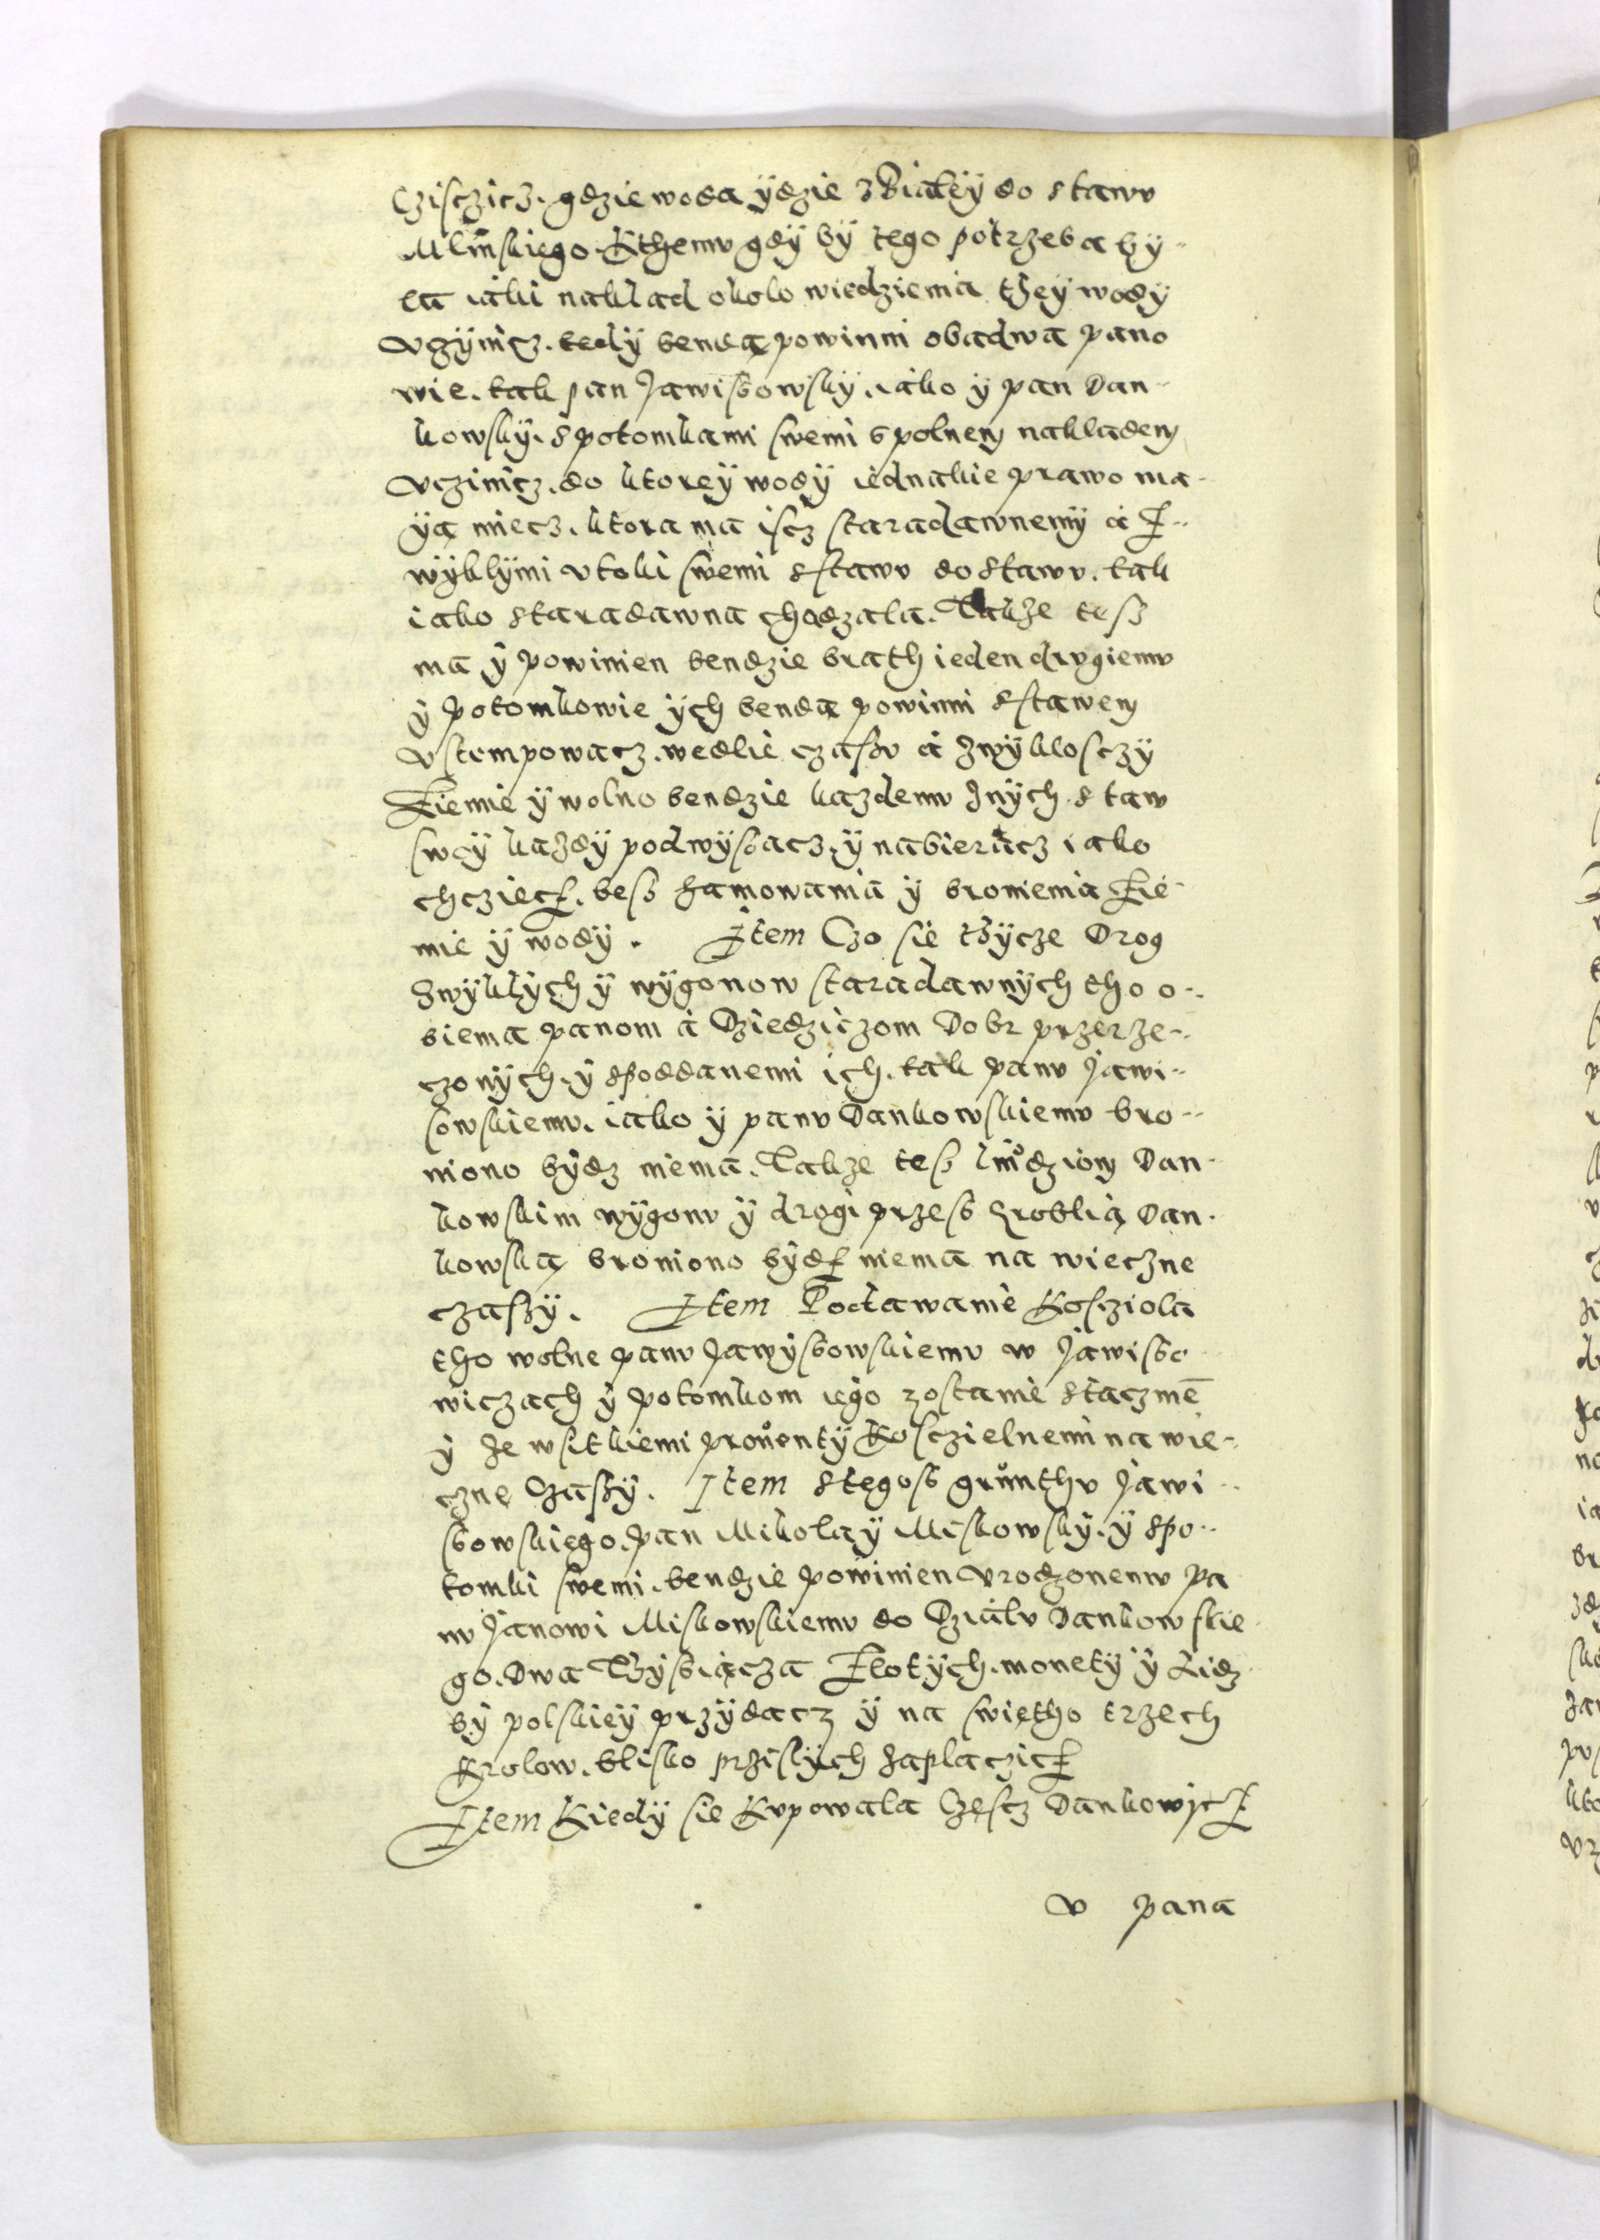 Czisczicz. gdzie woda ÿdzie z Bialeÿ do stawv
Mlinskiego. Kthemv gdÿ bÿ tego potrzeba bÿ-
la iaki naklad okolo wiedzienia theÿ wodÿ
vczÿnicz. tedÿ benda powinni obadwa pano
wie. tak pan Jawisowskÿ. iako ÿ pan Dan-
kowskÿ. s potomkami swemi spolnem nakladem
vczinicz. do ktoreÿ wodÿ iednakie prawo ma-
ÿą miecz. ktora ma iscz staradawnemÿ a z-
wÿklÿmi vtoki swemi s stawv do stawv. tak
iako staradawna chodzala. Takze tesz
ma ÿ powinien bendzie brath ieden drvgiemv
ÿ potomkowie ÿch benda powinni s stawem
vstempowacz. wedlie czassv a zwÿklosczÿ
Ziemie ÿ wolno bendzie kazdemv znÿch staw
swoÿ kazdÿ podwÿssacz. ÿ nabieracz iako
chcziecz. bess hamowania ÿ bronienia Zie-
mie ÿ wodÿ. Item Czo sie thÿcze Drog
zwÿklÿch ÿ wÿgonow staradawnÿch tho o-
biema panom a Dziedziczom Dobr przerze-
czonÿch. ÿ s poddanemi ich. tak panv Jawi-
sowskiemv. iako ÿ panv Dankowskiemv bro-
niono bÿdz niema. Takze tess lvdziom Dan-
kowskim wÿgonv ÿ drogi przess Groblią Dan-
kowską broniono bÿdz niema na wieczne
czassÿ. Item Podawanie Kosziola
tho wolne panv Jawÿssowskiemv w Jawisso
wiczach ÿ potomkom iego zostanie
ÿ ze wsitkiemi prouentÿ Kosczielnemi na wie-
czne Czassÿ. Item s tegoss grunthv Jawi-
ssowskiego. pan Mikolaÿ Miskowskÿ. ÿ s po-
tomki swemi. bendzie powinien vrodzonemv pa
nv Janowi Miskowskiemv do Dzialv Dankowskie-
go. Dwa Thÿsiącza Zlotÿch. monetÿ ÿ Lidz
bÿ polskieÿ przÿdacz ÿ na swiętho trzech
Krolow. blisko prziszlÿch zaplaczicz
Item Kiedÿ sie Kvpowala Czescz Dankowicz
v pana